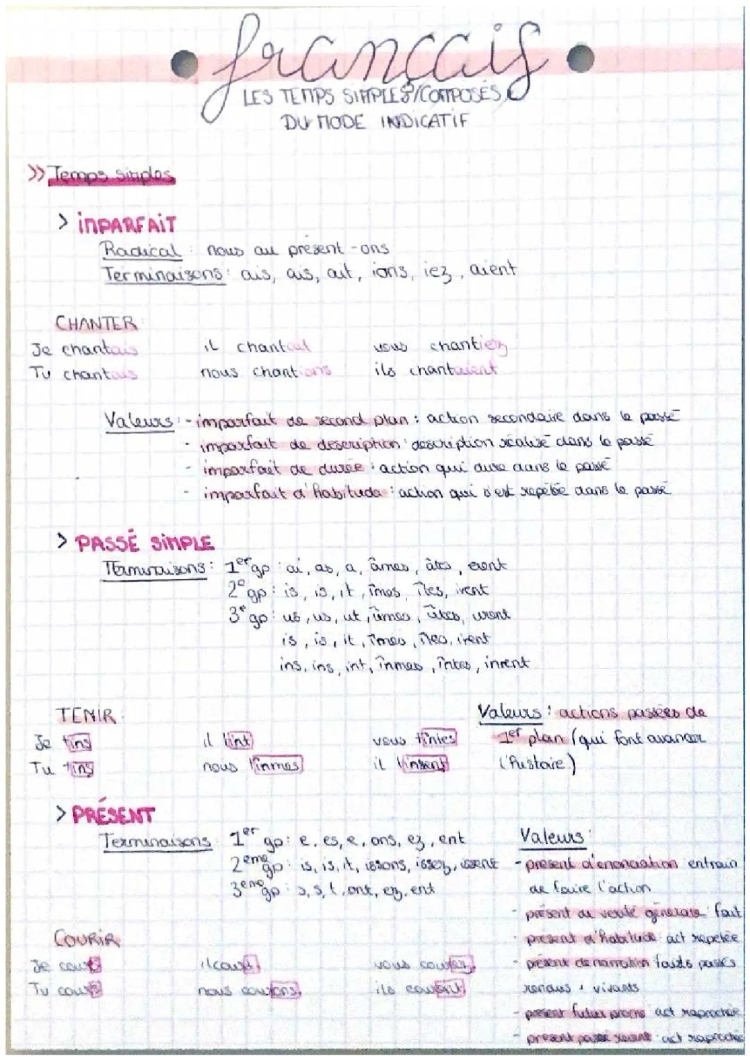 français
LES TEMPS SIMPLES/COMPOSÉS
DU MODE INDICATIF
>> Temps simples
> iMPARFAiT
Radical : nous au présent -ons
Terminaisons : ais, ais, ait, ions, iez, aient
CHANTER
Je chantais il chantait vous chantiez
Tu chantais nous chantions ils chantaient
Valeurs : - imparfait de second plan : action secondaire dans le passé
- imparfait de description : description réalisé dans le passé
- imparfait de durée : action qui dure dans le passé
- imparfait d'habitude : action qui s'est repétée dans le passé
> PASSÉ SiMPLE
Terminaisons : 1er gp : ai, as, a, âmes, âtes, erent
2e gp : is, is, it, îmes, îtes, irent
3e gp : us, us, ut, ûmes, ûtes, urent
is, is, it, îmes, îtes, irent
ins, ins, int, înmes, întes, inrent
TENIR
Je tins il tint vous tintes
Tu tins nous tinmes il tinsent
Valeurs : actions passées de
1er plan (qui font avancer
l'histoire)
> PRÉSENT
Terminaisons 1er gp : e, es, e, ons, ez, ent
2eme gp : is, is, it, issons, issez, issent
3eme gp : s, s, t, ont, ez, ent
Valeurs :
- présent d'énonciation entrain
de faire l'action
- présent de vérité générale fait
- présent d'habitude act repetée
- présent de narration faits passés
rendus + vivants
- présent futur proche act raprochée
- présent passé récent act raprochée
COURIR
Je cours il court vous courez
Tu cours nous courons ils courent